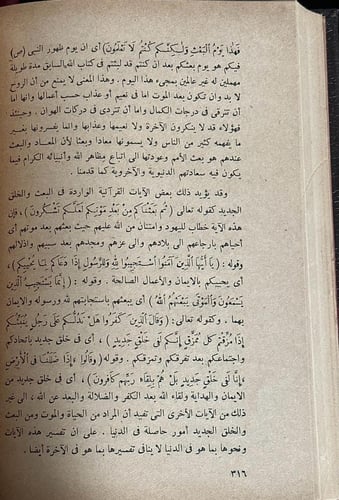 فَهٰذَا يَوْمُ ٱلْبَعْثِ وَلَـٰكِنَّكُمْ كُنْتُمْ لَا تَعْلَمُونَ) أى ان يوم ظهور النبى (ص)
فيكم هو يوم بعثكم بعد ان كنتم قد لبثتم فى كتاب الله السابق مدة طويلة
مهملين له غير عالمين بمجىء هذا اليوم . وهذا المعنى لا يمنع من أن الروح
لا بد وان تكون بعد الموت اما فى نعيم أو عذاب حسب أعمالها وانها اما
أن تترقى فى درجات الكمال واما أن تتردى فى دركات الهوان . وحينئذ
فهؤلاء قد لا ينكرون الآخرة ولا نعيمها وعذابها وانما يفسرونها بغير
ما يفهمه كثير من الناس ولا يسمونها معادا وبعثا لأن المعاد والبعث
عندهم هو بعث الأمم وعودتها الى اتباع مظاهر الله وأنبيائه الكرام فيما
يكون فيه سعادتهم الدنيوية والأخروية كما قدمنا .
وقد يؤيد ذلك بعض الآيات القرآنية الواردة فى البعث والخلق
الجديد كقوله تعالى (ثُمَّ بَعَثْنَاكُمْ مِنْ بَعْدِ مَوْتِكُمْ لَعَلَّكُمْ تَشْكُرُونَ) ، فإن
هذه الآية خطاب لليهود وامتنان من الله عليهم حيث بعثهم بعد موتهم أى
أحياهم بارجاعهم الى بلادهم والى عزهم ومجدهم بعد سبيهم واذلالهم
وقوله : (يَا أَيُّهَا ٱلَّذِينَ آمَنُوا ٱسْتَجِيبُوا لِلّٰهِ وَلِلرَّسُولِ إِذَا دَعَاكُمْ لِمَا يُحْيِيكُمْ) ،
أى يحييكم بالايمان والأعمال الصالحة . وقوله : (إِنَّمَا يَسْتَجِيبُ ٱلَّذِينَ
يَسْمَعُونَ وَٱلْمَوْتَى يَبْعَثُهُمُ ٱللّٰهُ) ، أى يبعثهم باستجابتهم لله ورسوله والايمان
بهما . وكقوله تعالى : (وَقَالَ ٱلَّذِينَ كَفَرُوا هَلْ نَدُلُّكُمْ عَلَى رَجُلٍ يُنَبِّئُكُمْ
إِذَا مُزِّقْتُمْ كُلَّ مُمَزَّقٍ إِنَّكُمْ لَفِى خَلْقٍ جَدِيدٍ) ، أى فى خلق جديد باتحادكم
واجتماعكم بعد تفرقكم وتمزقكم . وقوله (وَقَالُوا ءَإِذَا ضَلَلْنَا فِى ٱلْأَرْضِ
ءَإِنَّا لَفِى خَلْقٍ جَدِيدٍ بَلْ هُمْ بِلِقَاءِ رَبِّهِمْ كَافِرُونَ) ، أى فى خلق جديد من
الايمان والهداية ولقاء الله بعد الكفر والضلالة والبعد عن الله ، الى غير
ذلك من الآيات الأخرى التى تفيد أن المراد من الحياة والموت ومن البعث
والخلق الجديد أمور حاصلة فى الدنيا . على ان تفسير هذه الآيات
ونحوها بما هو فى الدنيا لا ينافى تفسيرها بما هو فى الآخرة أيضا .
٣١٦